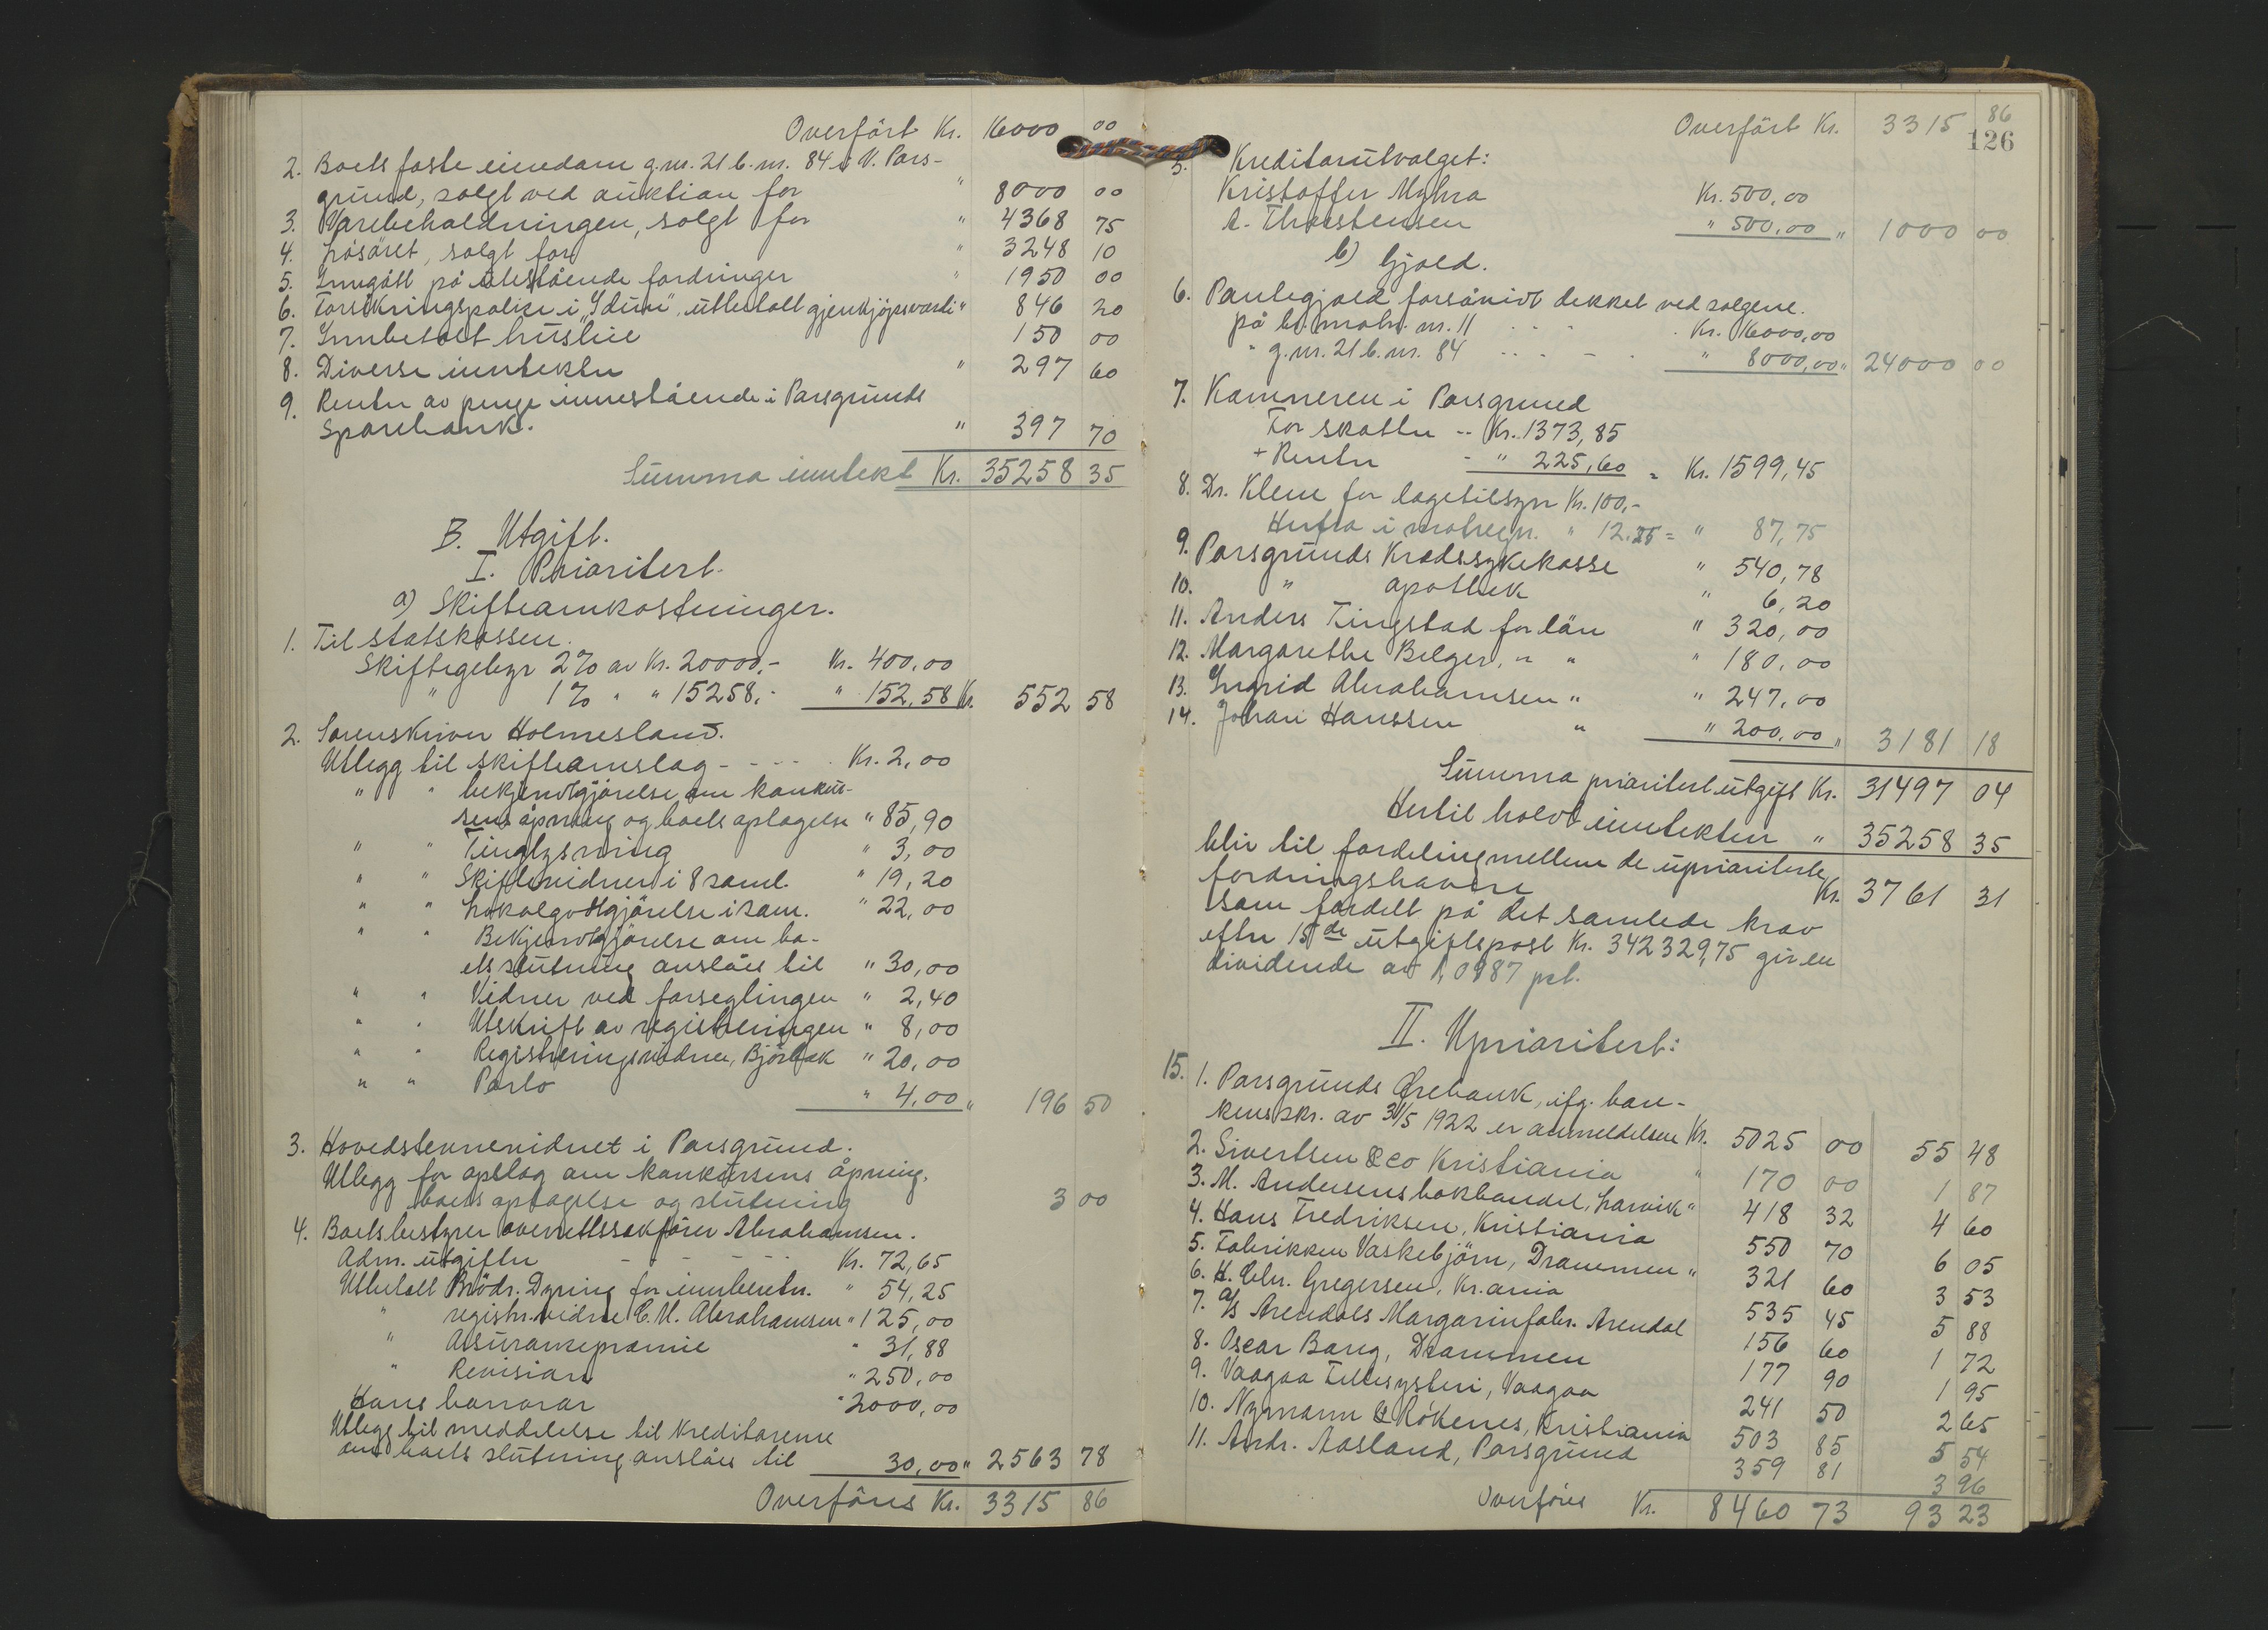 Overført Kr. 16000 00
2. Boets faste eiendom g.nr. 21 b.nr. 84 i V. Pors-
grund, solgt ved auktion for " 8000 00
3. Varebeholdningen, solgt for " 4368 75
4. Løsøret, solgt for " 3248 10
5. Inngått på utestående fordringer " 1950 00
6. Forsikringspolise i "Idun", utbetalt gjenkjöpsværdi " 846 20
7. Innbetalt husleie 150 00
8. Diverse inntekter " 297 60
9. Renter av penge innestående i Porsgrunds
Sparebank. " 397 70
Summa inntekt Kr. 35258 35
B. Utgift.
I. Prioritert.
a) Skifteomkostninger.
1. Til statskassen.
Skiftegebyr 2% av Kr. 20000,- Kr. 400,00
" 1% " " 15258,- " 152,58 Kr. 552 58
2. Sorenskriver Holmesland.
Utlegg til skifteomslag - - - - Kr. 2,00
" " bekjendtgjörelse om konkur-
sens åpning og boets optagelse " 85,90
" " Tinglysning " 3,00
" " Skiftevidner i 8 saml. " 19,20
" " Lokalgodtgjörelse i sam. " 22,00
" " Bekjendtgjörelse om bo-
ets slutning anslåes til " 30,00
" " Vidner ved forseglingen " 2,40
" " Utskrift av registreringen " 8,00
" " Registreringsvidne, Björbæk " 20,00
" " Porto " 4,00 " 196 50
3. Hovedstevnevidnet i Porsgrund.
Utlegg for opslag om konkursens åpning,
boets optagelse og slutning 3 00
4. Boets bestyrer overrettssakförer Abrahamsen.
Adm. utgifter - - - - Kr. 72,65
Utbetalt Brödr. Dyring for innberetn. " 54,25
" registr.vidne C. M. Abrahamsen " 125,00
" Assurancepramie " 31,88
" Revision " 250,00
Hans honorar " 2000,00
Utlegg til meddelelse til kreditorerne
om boets slutning anslåes til 30,00 " 2563 78
Overföres Kr. 3315 86
Overfört Kr. 3315 86
126
5. Kreditorutvalget:
Kristoffer Myhra Kr. 500,00
A. Thorstensen " 500,00 " 1000 00
b) Gjæld.
6. Pantegjæld forsåvidt dekket ved salgene.
på b. matr. nr. 11 Kr. 16000,00
" g.nr. 21 b.nr. 84 " 8000,00 " 24000 00
7. Kæmneren i Porsgrund
For skatter -- Kr. 1373,85
+ Renter - " 225,60 = Kr. 1599,45
8. Dr. Klem for lægetilsyn Kr. 100,-
Herfra i motregn. " 12.25 = " 87,75
9. Porsgrunds Kredssykekasse " 540,78
10. " apothek " 6,20
11. Anders Tingstad for lån " 320,00
12. Margarethe Belger, " " " 180,00
13. Ingrid Abrahamsen " " 247,00
14. Johan Hanssen " " 200,00 " 3181 18
Summa prioritert utgift Kr. 31497 04
Hertil holdt inntekten " 35258 35
blir til fordeling mellem de uprioriterte
fordringshavere Kr. 3761 31
som fordelt på det samlede krav
efter 15de utgiftspost Kr. 342329,75 gir en
dividende av 1,0987 pct.
II. Uprioritert:
15. 1. Porsgrunds Örebank, ifg. ban-
kens skr. av 31/5 1922 er anmeldelsen Kr. 5025 00 55 48
2. Sivertsen & co Kristiania " 170 00 1 87
3. M. Andersens bokhandel, Larvik " 418 32 4 60
4. Hans Fredriksen, Kristiania 550 70 6 05
5. Fabrikken Vaskebjörn, Drammen " 321 60 3 53
6. H. Chr. Gregersen, Kr.ania 535 45 5 88
7. A/S Arendals Margarinfabr. Arendal 156 60 1 72
8. Oscar Bang, Drammen 177 90 1 95
9. Vaagaa Fellesysteri, Vaagaa 241 50 2 65
10. Nymann & Rökenes, Kristiania 503 85 5 54
11. Andr. Aasland, Porsgrund 359 81 3 96
Overföres Kr. 8460 73 93 23